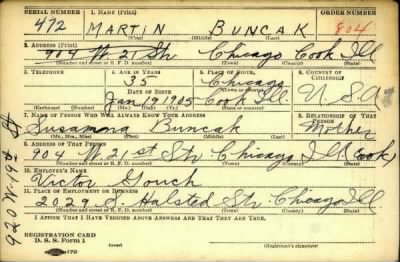 SERIAL NUMBER 1. NAME (Print) ORDER NUMBER
472 MARTIN BUNCAK 804
(First) (Middle) (Last)
2. ADDRESS (Print)
904 W 21 Str. Chicago Cook Ill
(Number and street or R. F. D. number) (Town) (County) (State)
3. TELEPHONE 4. AGE IN YEARS 5. PLACE OF BIRTH 6. COUNTRY OF CITIZENSHIP
35 Chicago
DATE OF BIRTH (Town or county) U.S.A
Jan 9 1905 Cook Ill.
(Exchange) (Number) (Mo.) (Day) (Yr.) (State or country)
7. NAME OF PERSON WHO WILL ALWAYS KNOW YOUR ADDRESS 8. RELATIONSHIP OF THAT PERSON
Susanna Buncak Mother
(Mr., Mrs., Miss) (First) (Middle) (Last)
9. ADDRESS OF THAT PERSON
904 W 21st Str. Chicago Ill (Cook)
(Number and street or R. F. D. number) (Town) (County) (State)
10. EMPLOYER'S NAME
Victor
11. PLACE OF EMPLOYMENT OR BUSINESS
2029 S. Halsted Str. Chicago Ill.
(Number and street or R. F. D. number) (Town) (County) (State)
I AFFIRM THAT I HAVE VERIFIED ABOVE ANSWERS AND THAT THEY ARE TRUE.
REGISTRATION CARD
D. S. S. Form 1
(Registrant's signature)
920 W-19 St